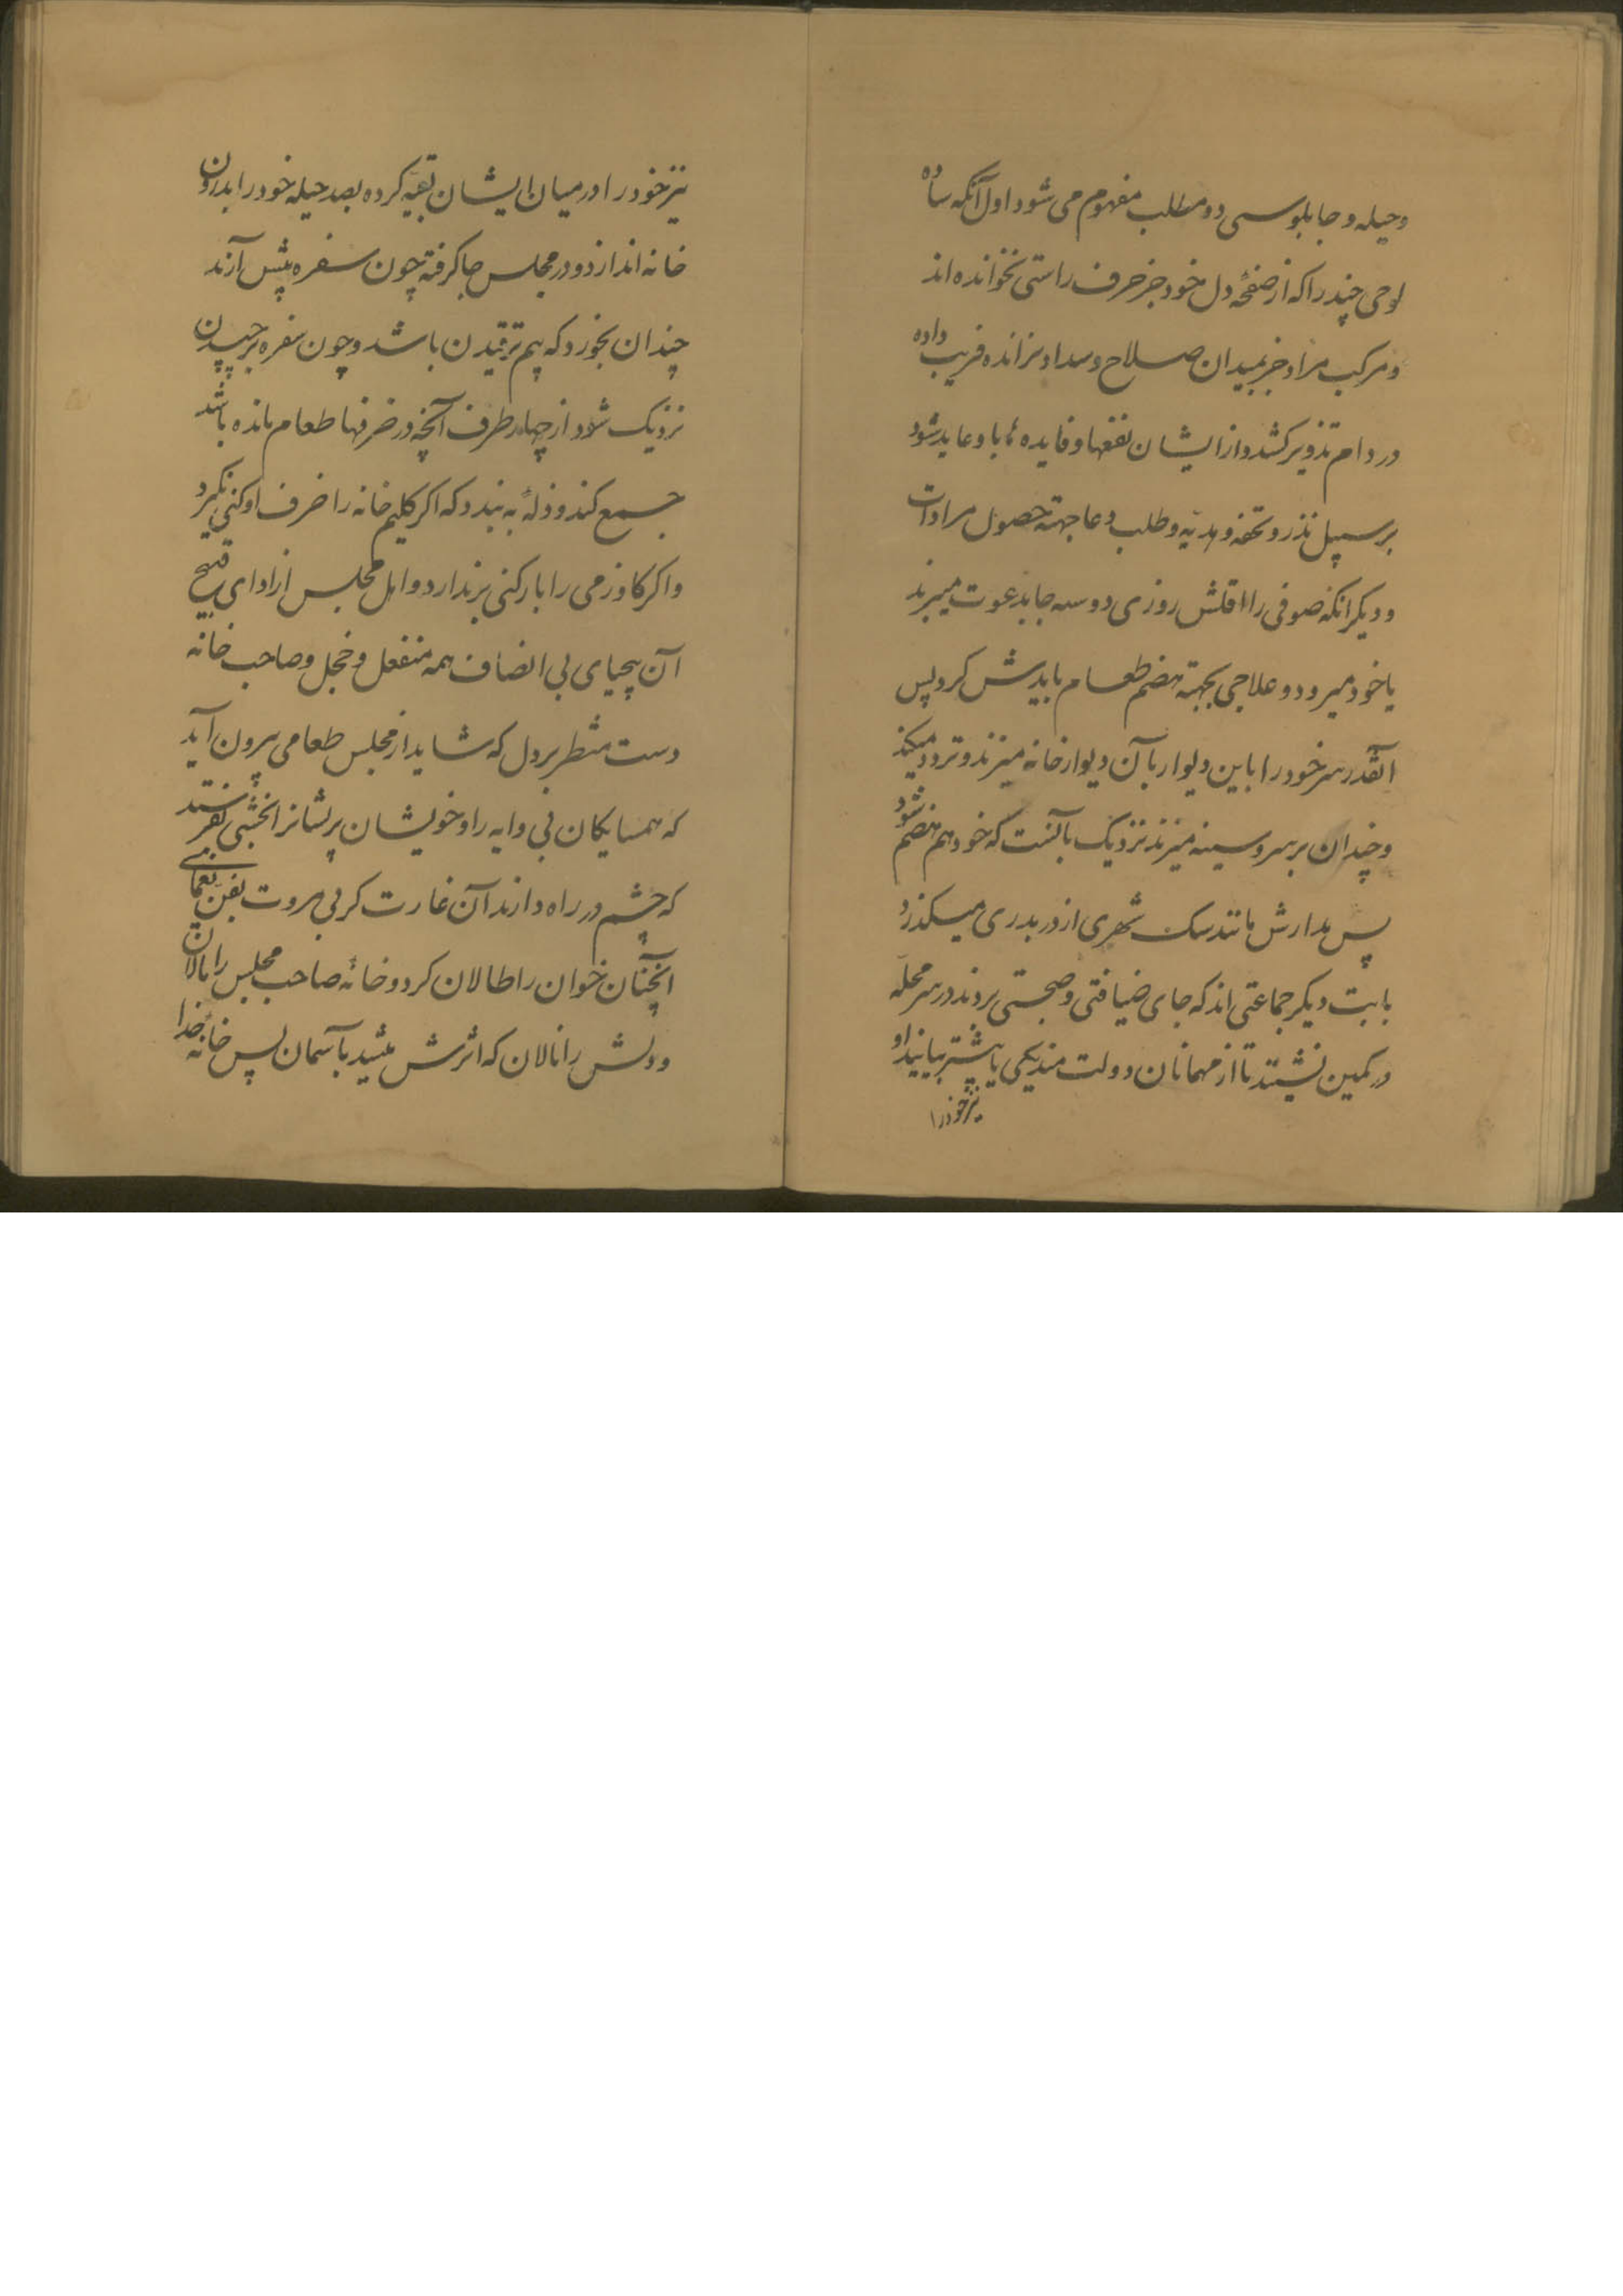 وحیله و جابلوسی دو مطلب مفهوم می شود اول آنکه ساده
لوحی چند را که از صفحهٔ دل خود جز حرف راستی نخوانده اند
و مرکب مراد جز بمیدان صلاح و سداد نرانده فریب داده
در دام تذویر کشد و از ایشان نفعها و فایده ها باو عاید شود
بر سبیل نذر و تحفه و هدیّه و طلب دعا جهته حصول مرادات
و دیکر انکه صوفی را اقلش روزی دو سه جا بدعوت میبرند
یا خود میرود و علاجی بجهته هضم طعام بایدش کرد پس
آنقدر سر خود را باین دیوار بآن دیوار خانه میزند و تردد میکند
و چندان بر سر و سینه میزند نزدیک بآنست که خود هم هضم شود
پس مدارش مانند سک شهری از در بدری میکذرد
بابت دیکر جماعتی اند که جای ضیافتی و صحبتی بروند در سر محلّه
در کمین نشینند تا از مهمانان دولت مند یکی یا بیشتر بیایند او
نیز خود را
نیز خود را در میان ایشان تعبیه کرده بصد حیله خود را بدرون
خانه اندازد و در مجلس جا کرفته چون سفره پیش آرند
چندان بخورد که بیم ترقیدن باشد و چون سفره برچیدن
نزدیک شود از چهار طرف آنچه در ضرفها طعام مانده باشد
جمع کند و ذلهٔ به بندد که اکر کلیم خانه را ضرف او کنی نکیرد
و اکر کاو زمی را بار کنی برندارد و اهل مجلس از ادای قبیح
آن بیحیای بی انصاف همه منفعل و خجل و صاحب خانه
دست منتظر بر دل که شاید از مجلس طعامی بیرون آید
که همسایکان بی وایه را و خویشان پریشانرا بخشی بفرستد
که چشم در راه دارند آن غارت کر بی مروت بفنّ یغمایی
آنچنان خوان را طالان کرد و خانهٔ صاحب مجلس را نالان
و دلش را نالان که اثرش رسید بآسمان پس خانه خدا